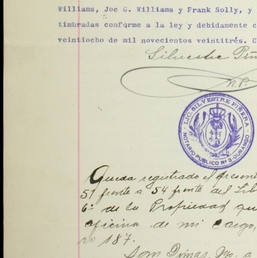 Williams, Joe G. Williams y Frank Solly, y
timbradas conforme a la ley y debidamente c
veintiocho de mil novecientos veintitrés. C
Silvestre Piñ
LIC. SILVESTRE PIÑERA
NOTARIO PUBLICO Nº 3 DURANGO
Queda registrado el
51 frente a 54 frente del Lib
6º de la Propiedad que
oficina de mi cargo,
No 187.